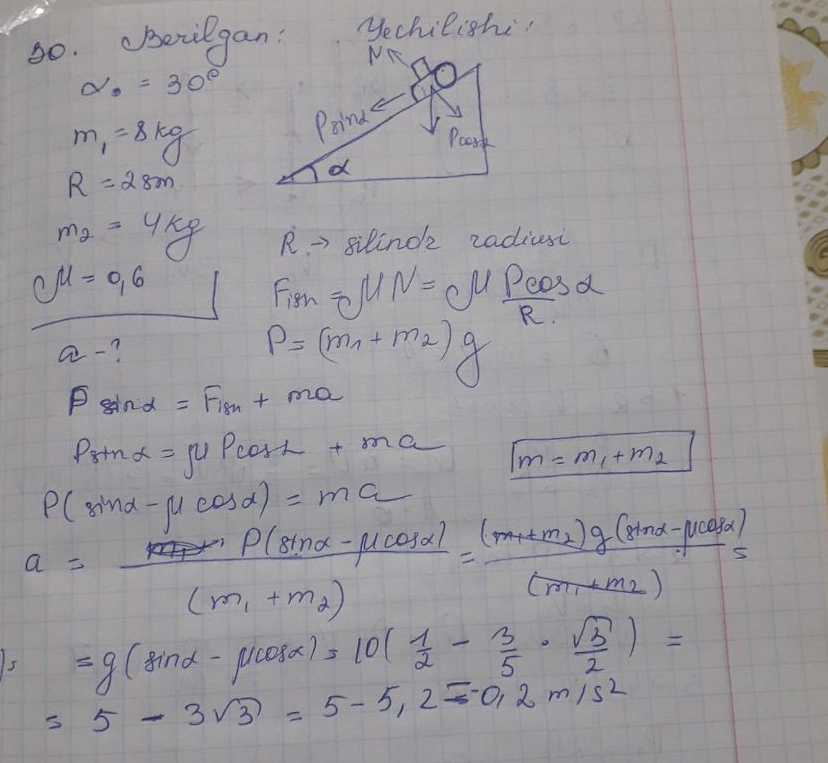 30. Berilgan: Yechilishi:
α₀ = 30°
m₁ = 8 kg
R = 28m
m₂ = 4 kg
μ = 0,6
a - ?
N
Psinα
Pcosα
α
R → silindr radiusi
Fish = μN = μ Pcosα / R.
P = (m₁ + m₂) g
P sinα = Fish + ma
Psinα = μ Pcosα + ma
m = m₁ + m₂
P(sinα - μ cosα) = ma
a = P(sinα - μcosα) / (m₁ + m₂) = (m₁+m₂)g(sinα - μcosα) / (m₁+m₂) =
= g(sinα - μcosα) = 10(1/2 - 3/5 · √3/2) =
= 5 - 3√3 = 5 - 5,2 = -0,2 m/s²